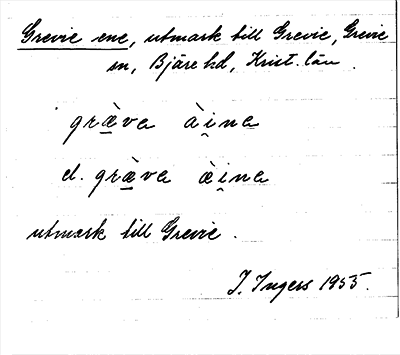 Grevie ene, utmark till Grevie, Grevie
sn, Bjäre hd, Krist. län.
græ̀va ài̯na
el. græ̀va æ̀i̯na
utmark till Grevie.
I. Ingers 1955.